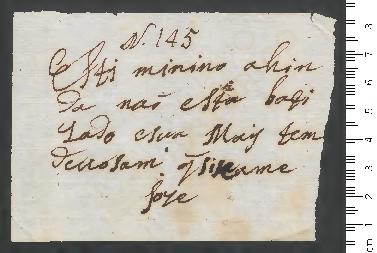 N. 145
Esti minino ahin
da naõ esta bati
zado esua Mais tem
deuosam q̃ 
Joze